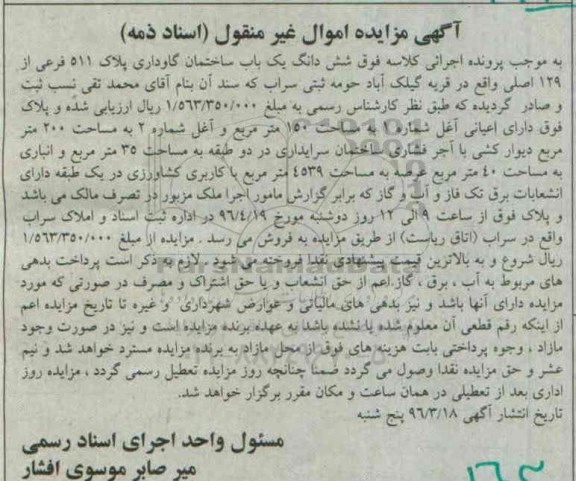 آگهی مزایده اموال غیر منقول (اسناد ذمه)
به موجب پرونده اجرائی کلاسه فوق شش دانگ یک باب ساختمان گاوداری پلاک ۵۱۱ فرعی از
۱۲۹ اصلی واقع در قریه گیلک آباد حومه ثبتی سراب که سند آن بنام آقای محمد تقی نسب ثبت
و صادر گردیده که طبق نظر کارشناس رسمی به مبلغ ۱/۵۶۳/۳۵۰/۰۰۰ ریال ارزیابی شده و پلاک
فوق دارای اعیانی آغل شماره ۱ به مساحت ۱۵۰ متر مربع و آغل شماره ۲ به مساحت ۲۰۰ متر
مربع دیوار کشی با آجر فشاری ساختمان سرایداری در دو طبقه به مساحت ۳۵ متر مربع و انباری
به مساحت ۴۰ متر مربع عرصه به مساحت ۴۵۳۹ متر مربع با کاربری کشاورزی در یک طبقه دارای
انشعابات برق تک فاز و آب و گاز که برابر گزارش مامور اجرا ملک مزبور در تصرف مالک می باشد
و پلاک فوق از ساعت ۹ الی ۱۲ روز دوشنبه مورخ ۹۶/۴/۱۹ در اداره ثبت اسناد و املاک سراب
واقع در سراب (اتاق ریاست) از طریق مزایده به فروش می رسد . مزایده از مبلغ ۱/۵۶۳/۳۵۰/۰۰۰
ریال شروع و به بالاترین قیمت پیشنهادی نقدا فروخته می شود . لازم به ذکر است پرداخت بدهی
های مربوط به آب ، برق ، گاز اعم از حق انشعاب و یا حق اشتراک و مصرف در صورتی که مورد
مزایده دارای آنها باشد و نیز بدهی های مالیاتی و عوارض شهرداری و غیره تا تاریخ مزایده اعم
از اینکه رقم قطعی آن معلوم شده یا نشده باشد به عهده برنده مزایده است و نیز در صورت وجود
مازاد ، وجوه پرداختی بابت هزینه های فوق از محل مازاد به برنده مزایده مسترد خواهد شد و نیم
عشر و حق مزایده نقدا وصول می گردد ضمنا چنانچه روز مزایده تعطیل رسمی گردد ، مزایده روز
اداری بعد از تعطیلی در همان ساعت و مکان مقرر برگزار خواهد شد.
تاریخ انتشار آگهی ۹۶/۳/۱۸ پنج شنبه
مسئول واحد اجرای اسناد رسمی
میر صابر موسوی افشار